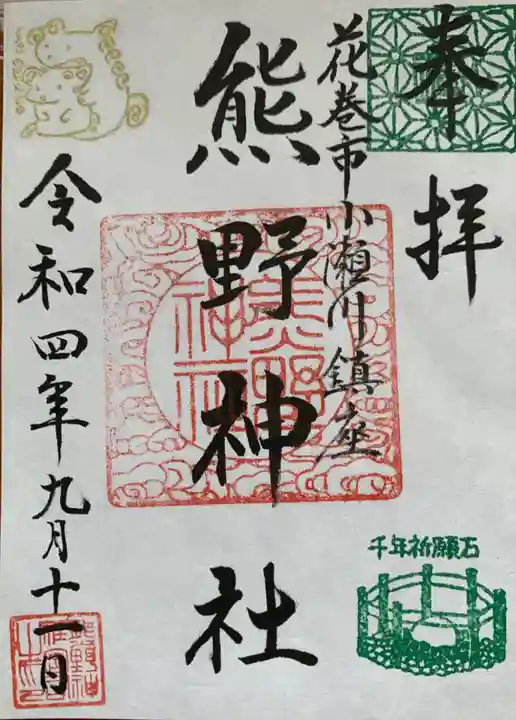 奉拝
花巻市小瀬川鎮座
熊野神社
令和四年九月十一日
千年祈願石